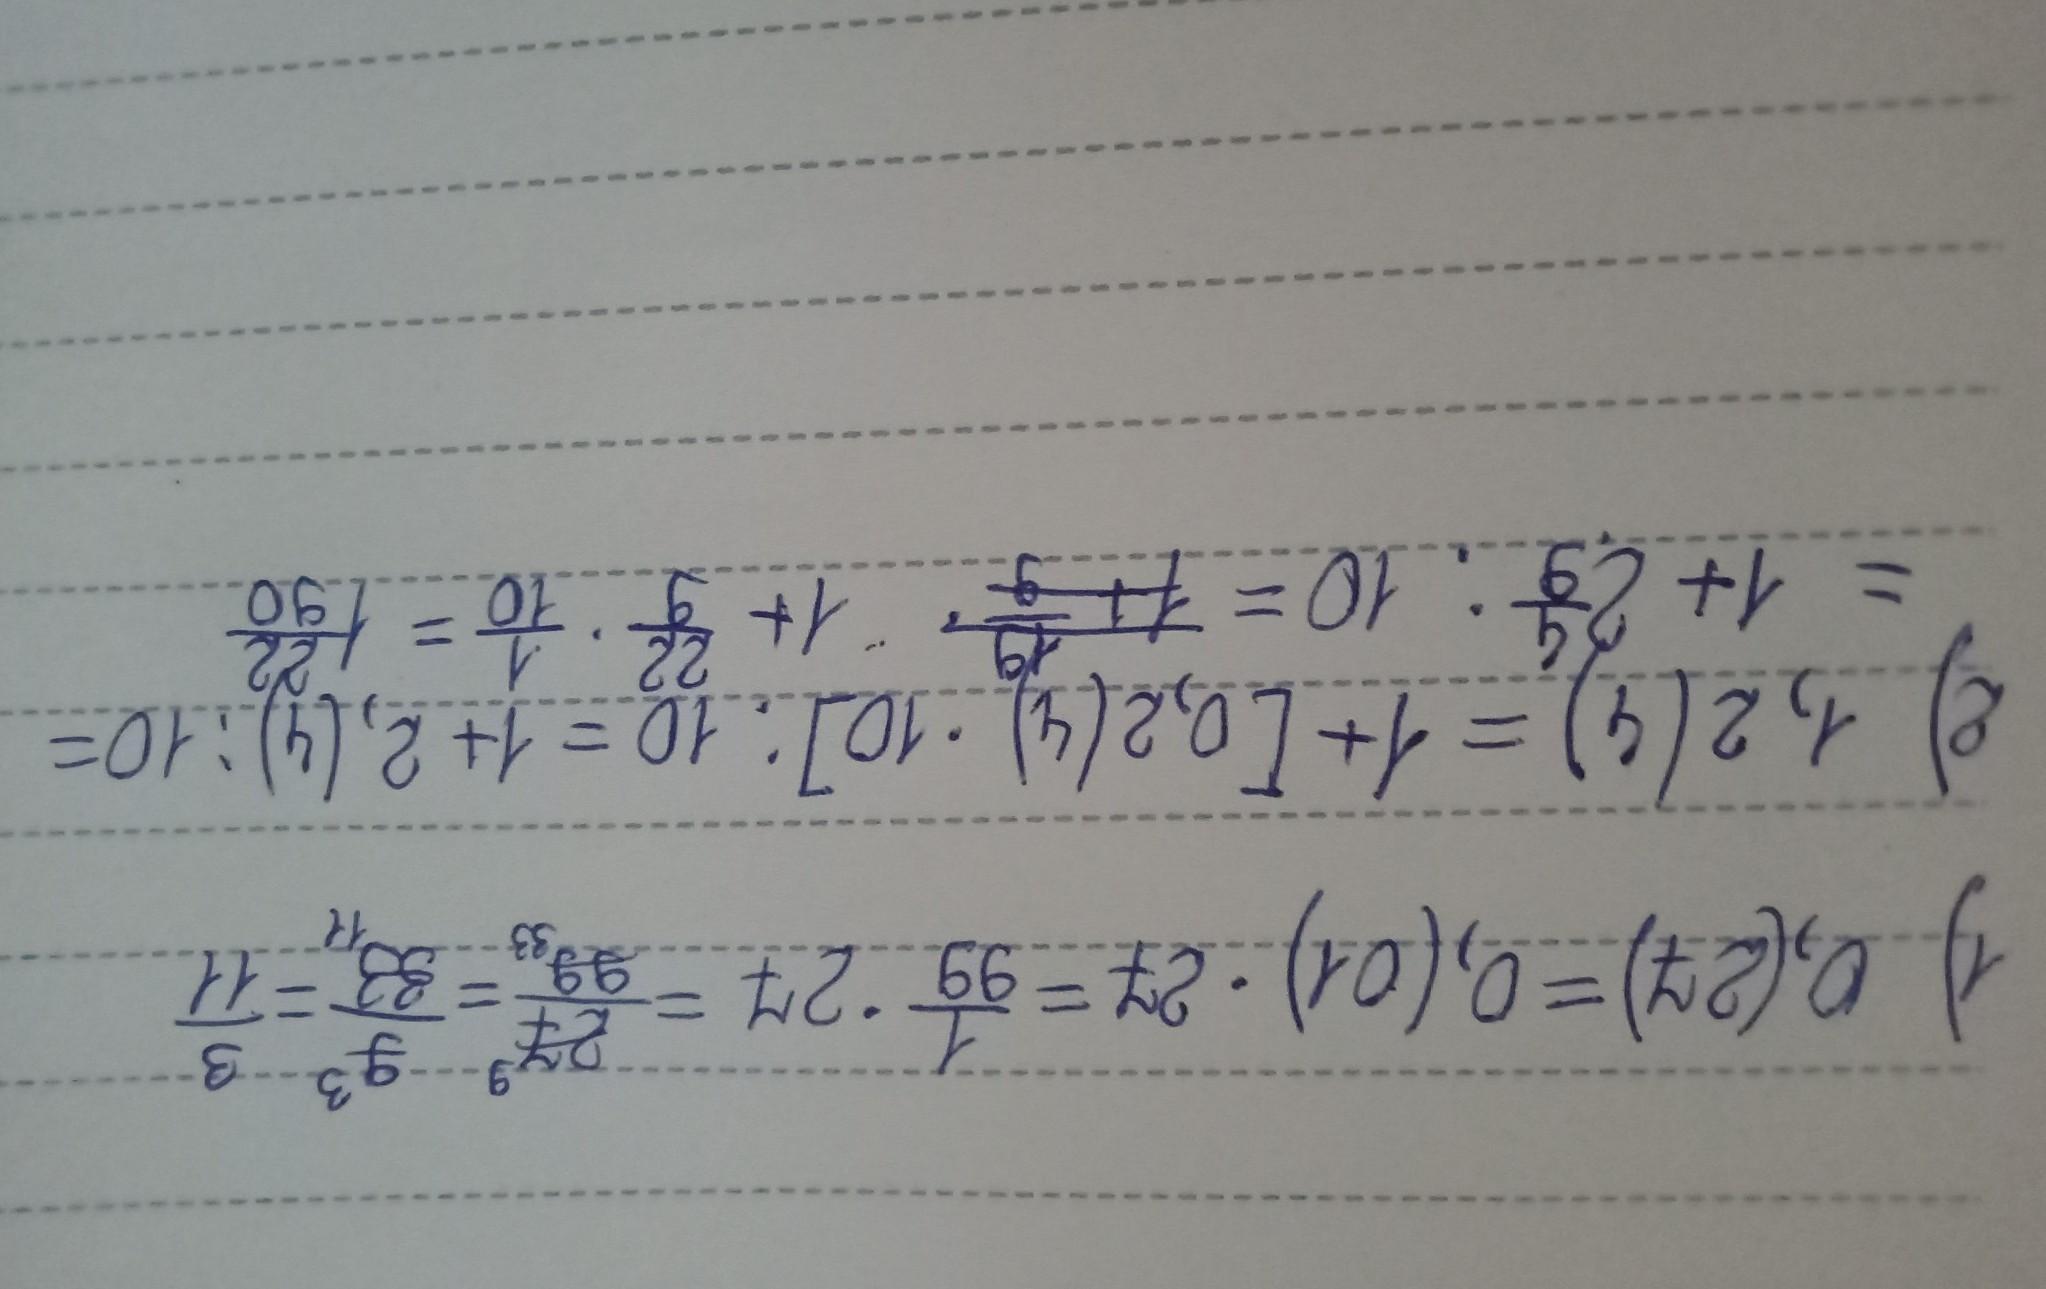 1) 0,(27) = 0,(01) · 27 = 1/99 · 27 = 27/99 = 9/33 = 3/11
2) 1,2(4) = 1 + [0,2(4) · 10] : 10 = 1 + 2,(4) : 10 =
= 1 + 2 4/9 : 10 = 1 + 22/9 · 1/10 = 1 22/90